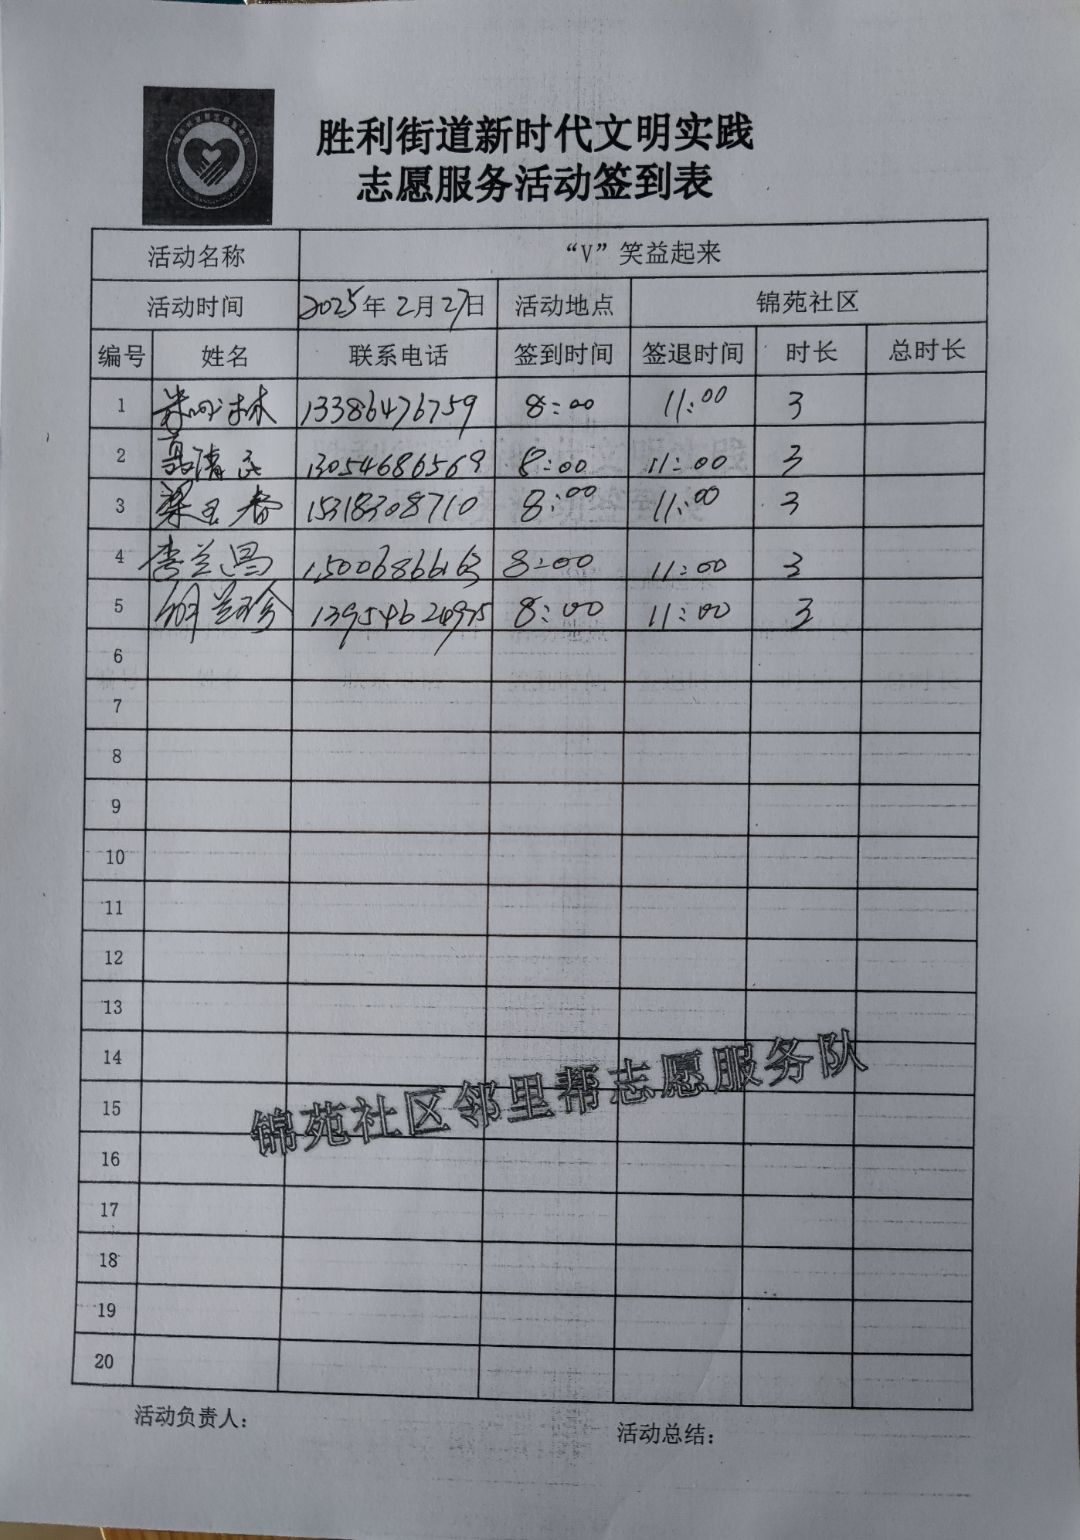 胜利街道新时代文明实践
志愿服务活动签到表
活动名称 “V”笑益起来
活动时间 2025年2月27日 活动地点 锦苑社区
编号 姓名 联系电话 签到时间 签退时间 时长 总时长
1 林 13386476759 8:00 11:00 3
2 高清 13054686569 8:00 11:00 3
3 梁玉春 15318308710 8:00 11:00 3
4 李兰昌 15006866163 8:00 11:00 3
5 胡兰珍 13954624975 8:00 11:00 3
6
7
8
9
10
11
12
13
14
15
16
17
18
19
20
锦苑社区邻里帮志愿服务队
活动负责人: 活动总结: